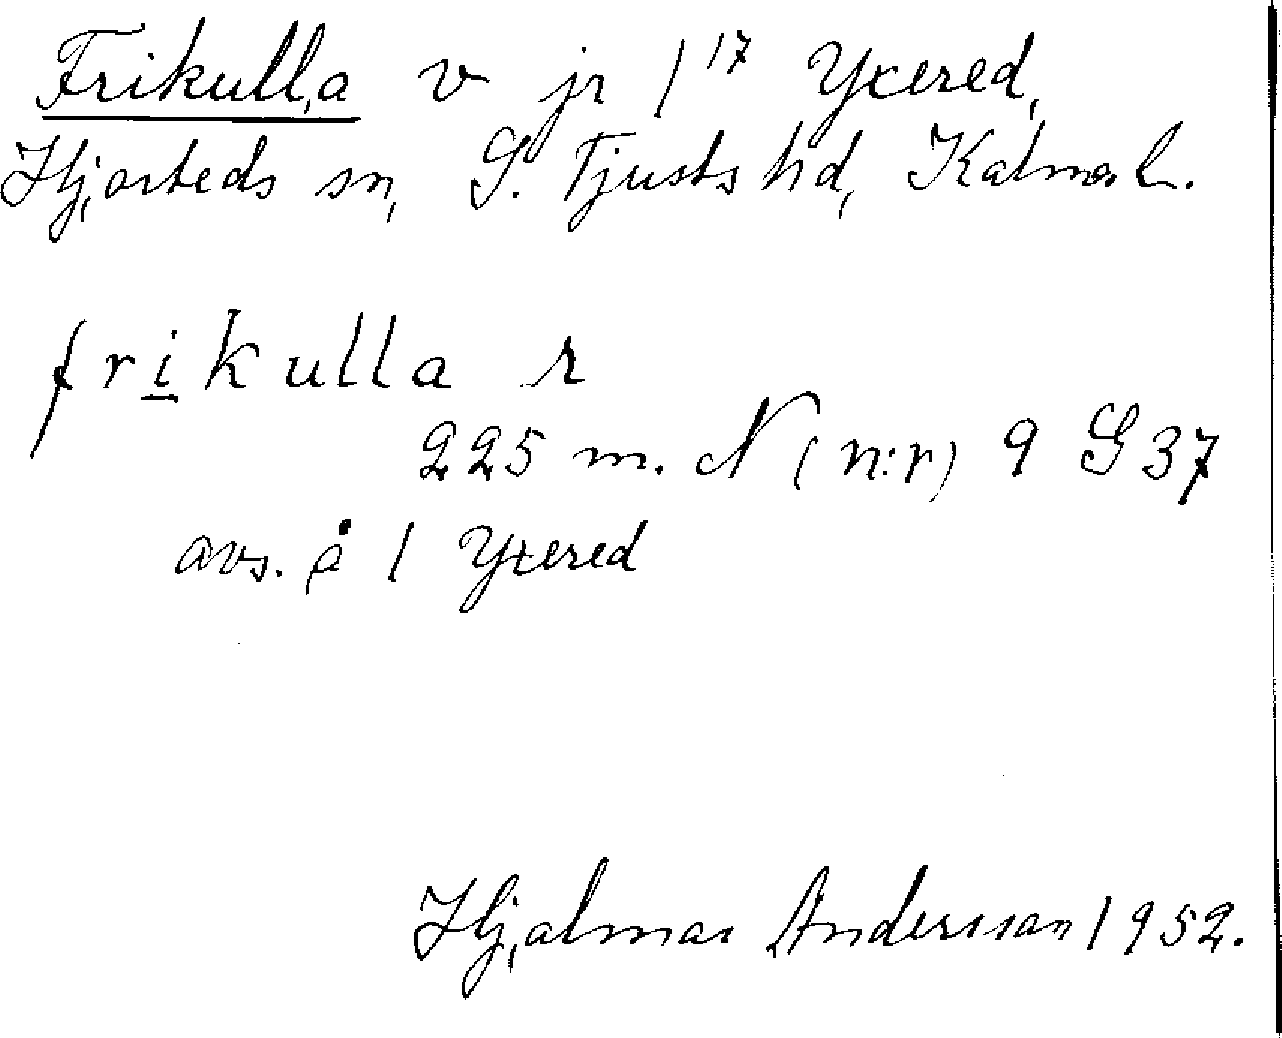 Frikulla v jr 1 17 Yxered,
Hjorteds sn, S. Tjusts hd, Kalmar l.
frikulla r
225 m. N (n:r) 9 G 37
avs. å 1 Yxered
Hjalmar Andersson 1952.